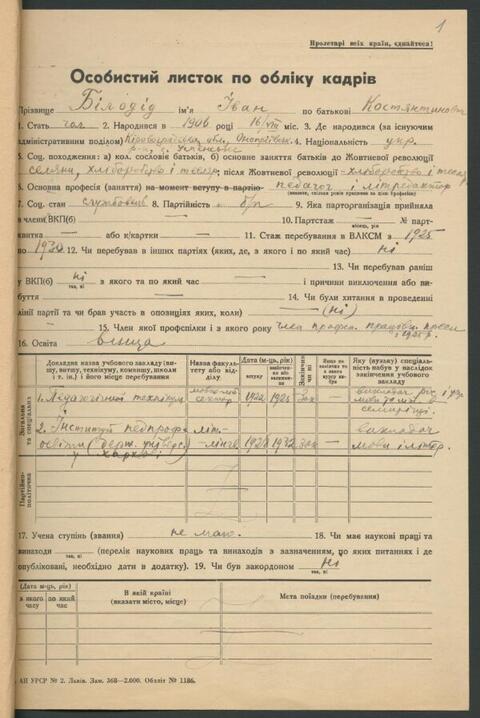 1
Пролетарі всіх країн, єднайтеся!
Особистий листок по обліку кадрів
Прізвище Білодід ім'я Іван по батькові Костянтинович
1. Стать чол 2. Народився в 1906 році 16/VIII міс. 3. Де народився (за існуючим
адміністративним поділом) Кіровоградська обл., Онопріївськ. 4. Національність укр.
р-н, с. Успенське
5. Соц. походження: а) кол. сословіє батьків, б) основне заняття батьків до Жовтневої революції
селяни, хліборобство і тесляр; після Жовтневої революції - хліборобство і тесляр
6. Основна професія (заняття) на момент вступу в партію педагог і літредактор
7. Соц. стан службовець 8. Партійність б/п 9. Яка парторганізація прийняла
в члени ВКП(б) — 10. Партстаж — № парт-
місяць, рік
квитка — або к/картки — 11. Стаж перебування в ВЛКСМ з 1925
по 1930 12. Чи перебував в інших партіях (яких, де, з якого і по який час) ні
13. Чи перебував раніш
у ВКП(б) ні з якого та по який час — і причини виключення або ви-
так, ні
буття — 14. Чи були хитання в проведенні
лінії партії та чи брав участь в опозиціях, яких (коли) — (ні)
15. Член якої профспілки і з якого року член профсп. працівн. преси
з 1925 р.
16. Освіта вища
Докладна назва учбового закладу (ви-
шу, втишу, технікуму, комвишу, школи
і т. ін.) і його місце перебування
Назва факуль-
тету або від-
ділу
Дата (м-ць, рік)
вступу
закінчен-
ня або
Закінчив
чи ні
Якщо не
закінчив то
з якого
курсу ви-
був
Яку (вузьку) спеціаль-
ність набув у наслідок
закінчення учбового
закладу
Загальна
та спеціальна
1. Педагогічний технікум 1922 1925 Зак — викладач
мови
семирічці.
2. Інститут педпроф- літ-
освіти (держ. універс. лінгв. 1928 1932 Зак — викладач
у Харкові) мови і літер.
Партійно-
політична
17. Учена ступінь (звання) не маю. 18. Чи має наукові праці та
винаходи — (перелік наукових праць та винаходів з зазначенням, по яких питаннях і де
так, ні
опубліковані, необхідно дати в додатку). 19. Чи був закордоном ні
так, ні
Дата (м-ць, рік)
з якого
часу
по який
час
В якій країні
(вказати місто, місце)
Мета поїздки (перебування)
АП УРСР № 2. Львів. Зам. 368—2.000. Обліліт № 1186.